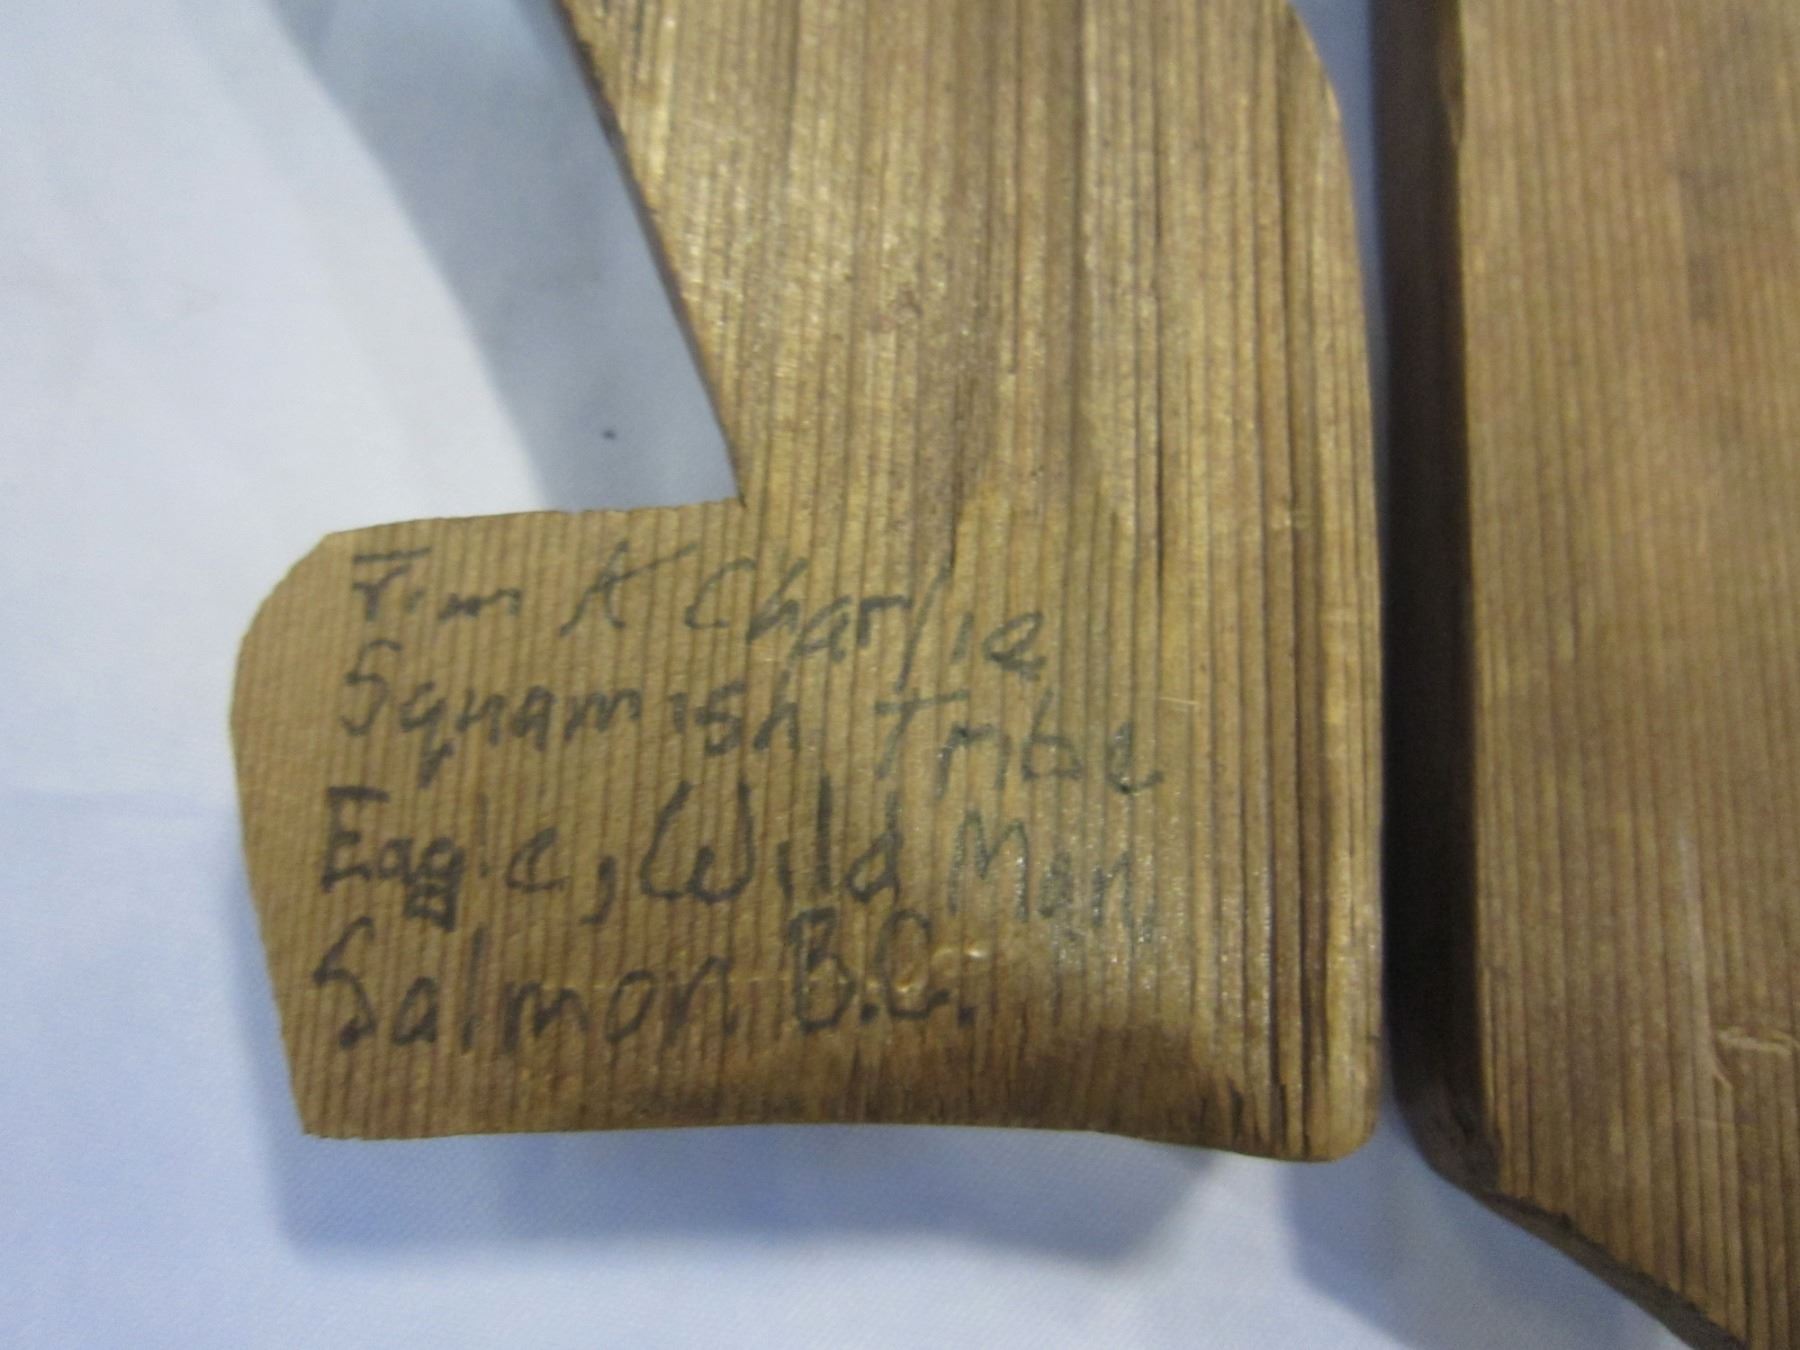 Tim K Charlie
Squamish Tribe
Eagle, Wild Man,
Salmon B.C.